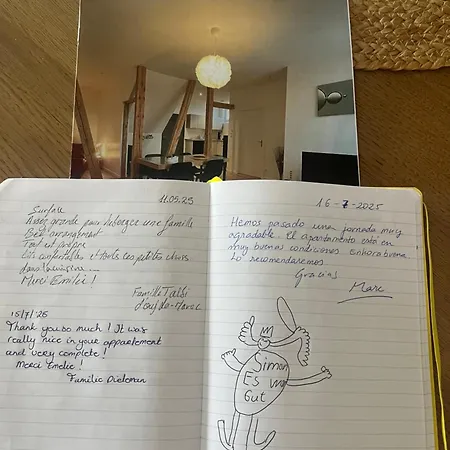 11.05.25
Surface
Assez grande pour héberger une famille
Bon arrangement
Tout est propre
Lits confortables et toute ces petites choses
dans la cuisine...
Merci Emilie!
Famille Talbi
Oujda-Maroc
15/7/25
Thank you so much! It was
really nice in your appartement
and very complete!
Merci Emelie!
Familie Dieleman
16-7-2025
Hemos pasado una jornada muy
agradable. El apartamento está en
muy buena condiciones. Enhorabuena.
Lo recomendaremos.
Gracias
Marc
Simon
Es war
Gut